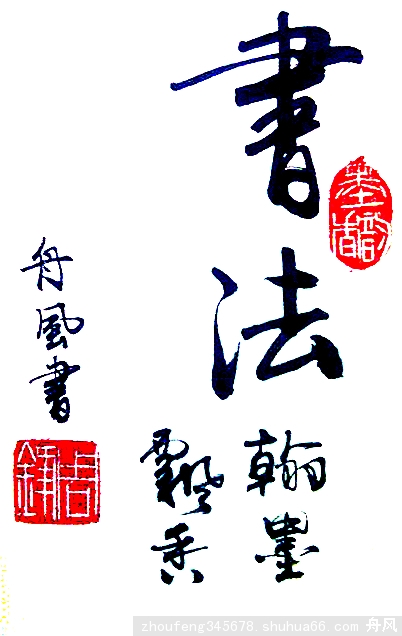 書法
翰墨
飄香
舟風書
周鋒
zhoufeng345678.shuhua66.com 舟风